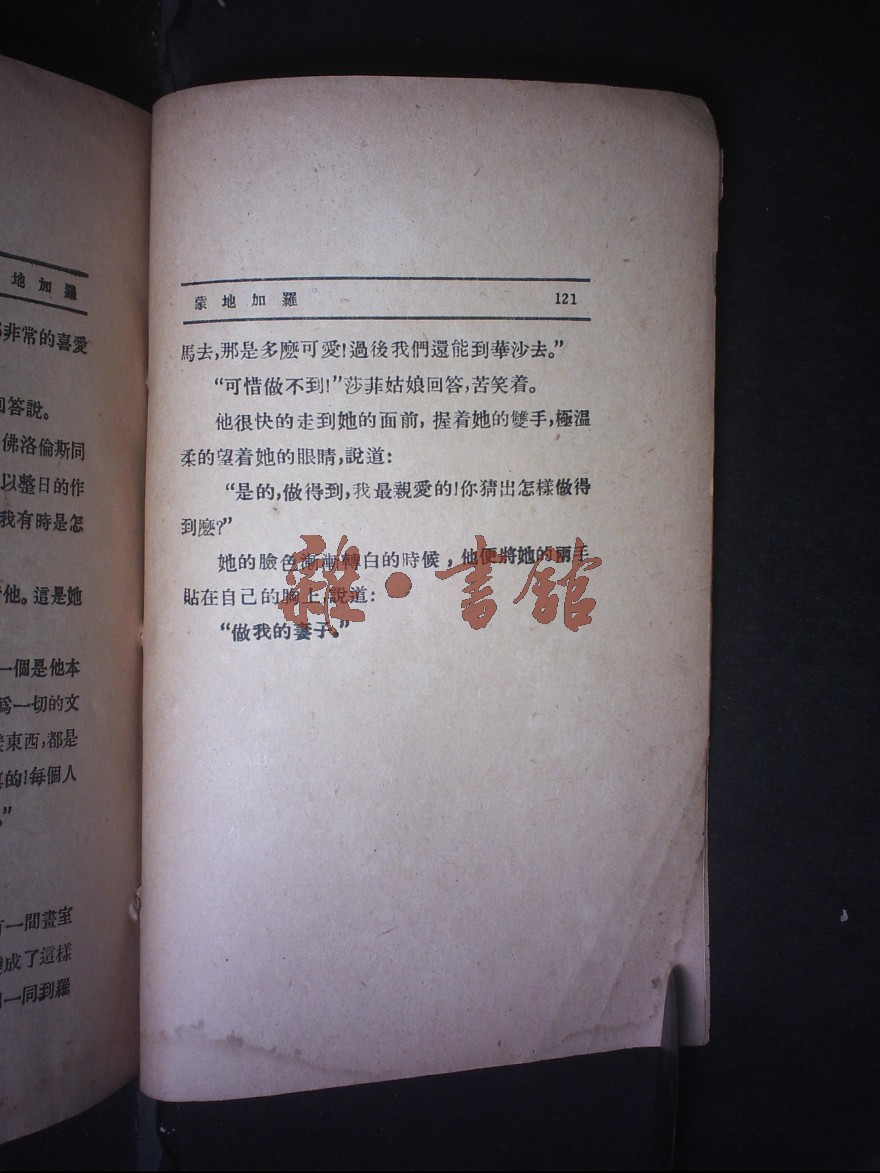 地加羅
非常的喜愛
回答說。
佛洛倫斯同
以整日的作
我有時是怎
他。這是她
一個是他本
爲一切的文
東西,都是
的!每個人
”
一間畫室
成了這樣
一同到羅
蒙地加羅 121
馬去,那是多麽可愛!過後我們還能到華沙去。”
“可惜做不到!”莎菲姑娘回答,苦笑着。
他很快的走到她的面前,握着她的雙手,極温
柔的望着她的眼睛,說道:
“是的,做得到,我最親愛的!你猜出怎樣做得
到麽?”
她的臉色漸漸轉白的時候,他便將她的兩手
貼在自己的胸上,說道:
“做我的妻子。”
雜·書館